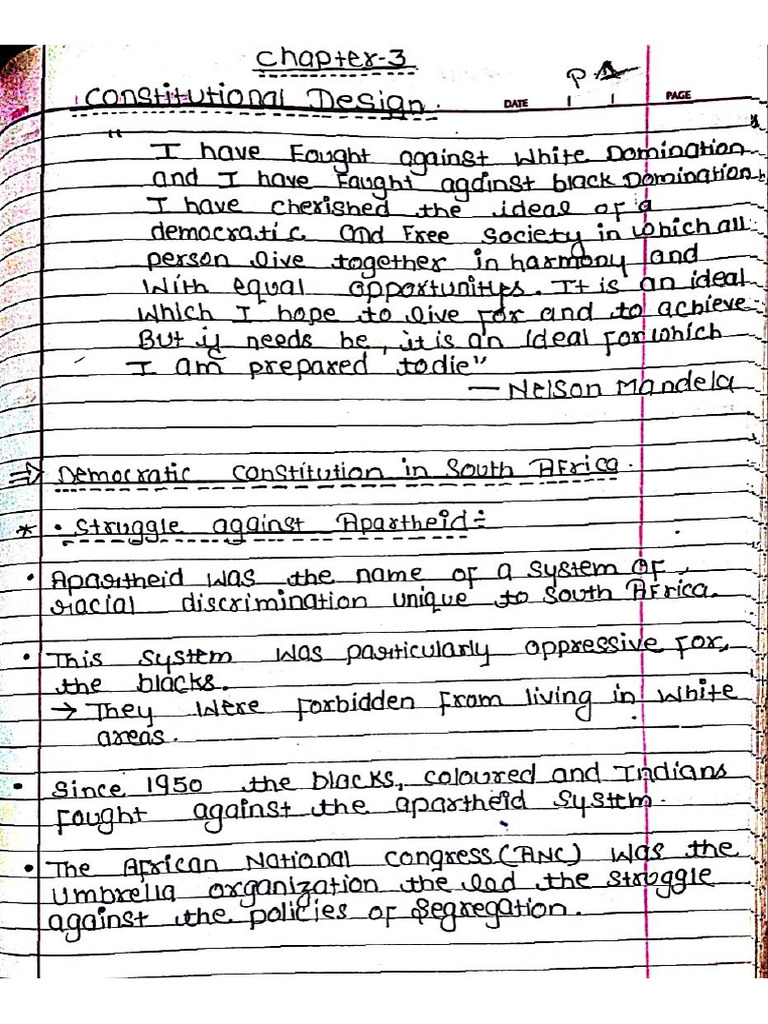 Chapter-3
P-1
Constitutional Design.
DATE
PAGE
"I have Fought against White Domination
and I have Faught against black Domination,
I have cherished the ideal of a
democratic and Free society in which all
person live together in harmony and
With equal opportunities. It is an ideal
Which I hope to live for and to achieve
But if needs be, it is an ideal for which
I am prepared to die"
— Nelson Mandela
⇒ Democratic constitution in South Africa.
* • Struggle against Apartheid:-
• Apartheid was the name of a system of
racial discrimination unique to South Africa.
• This system was particularly oppressive for,
the blacks.
→ They were forbidden from living in white
areas.
• Since 1950 the blacks, coloured and Indians
fought against the apartheid system.
• The African National congress (ANC) was the
Umbrella organization the led the struggle
against the policies of Segregation.